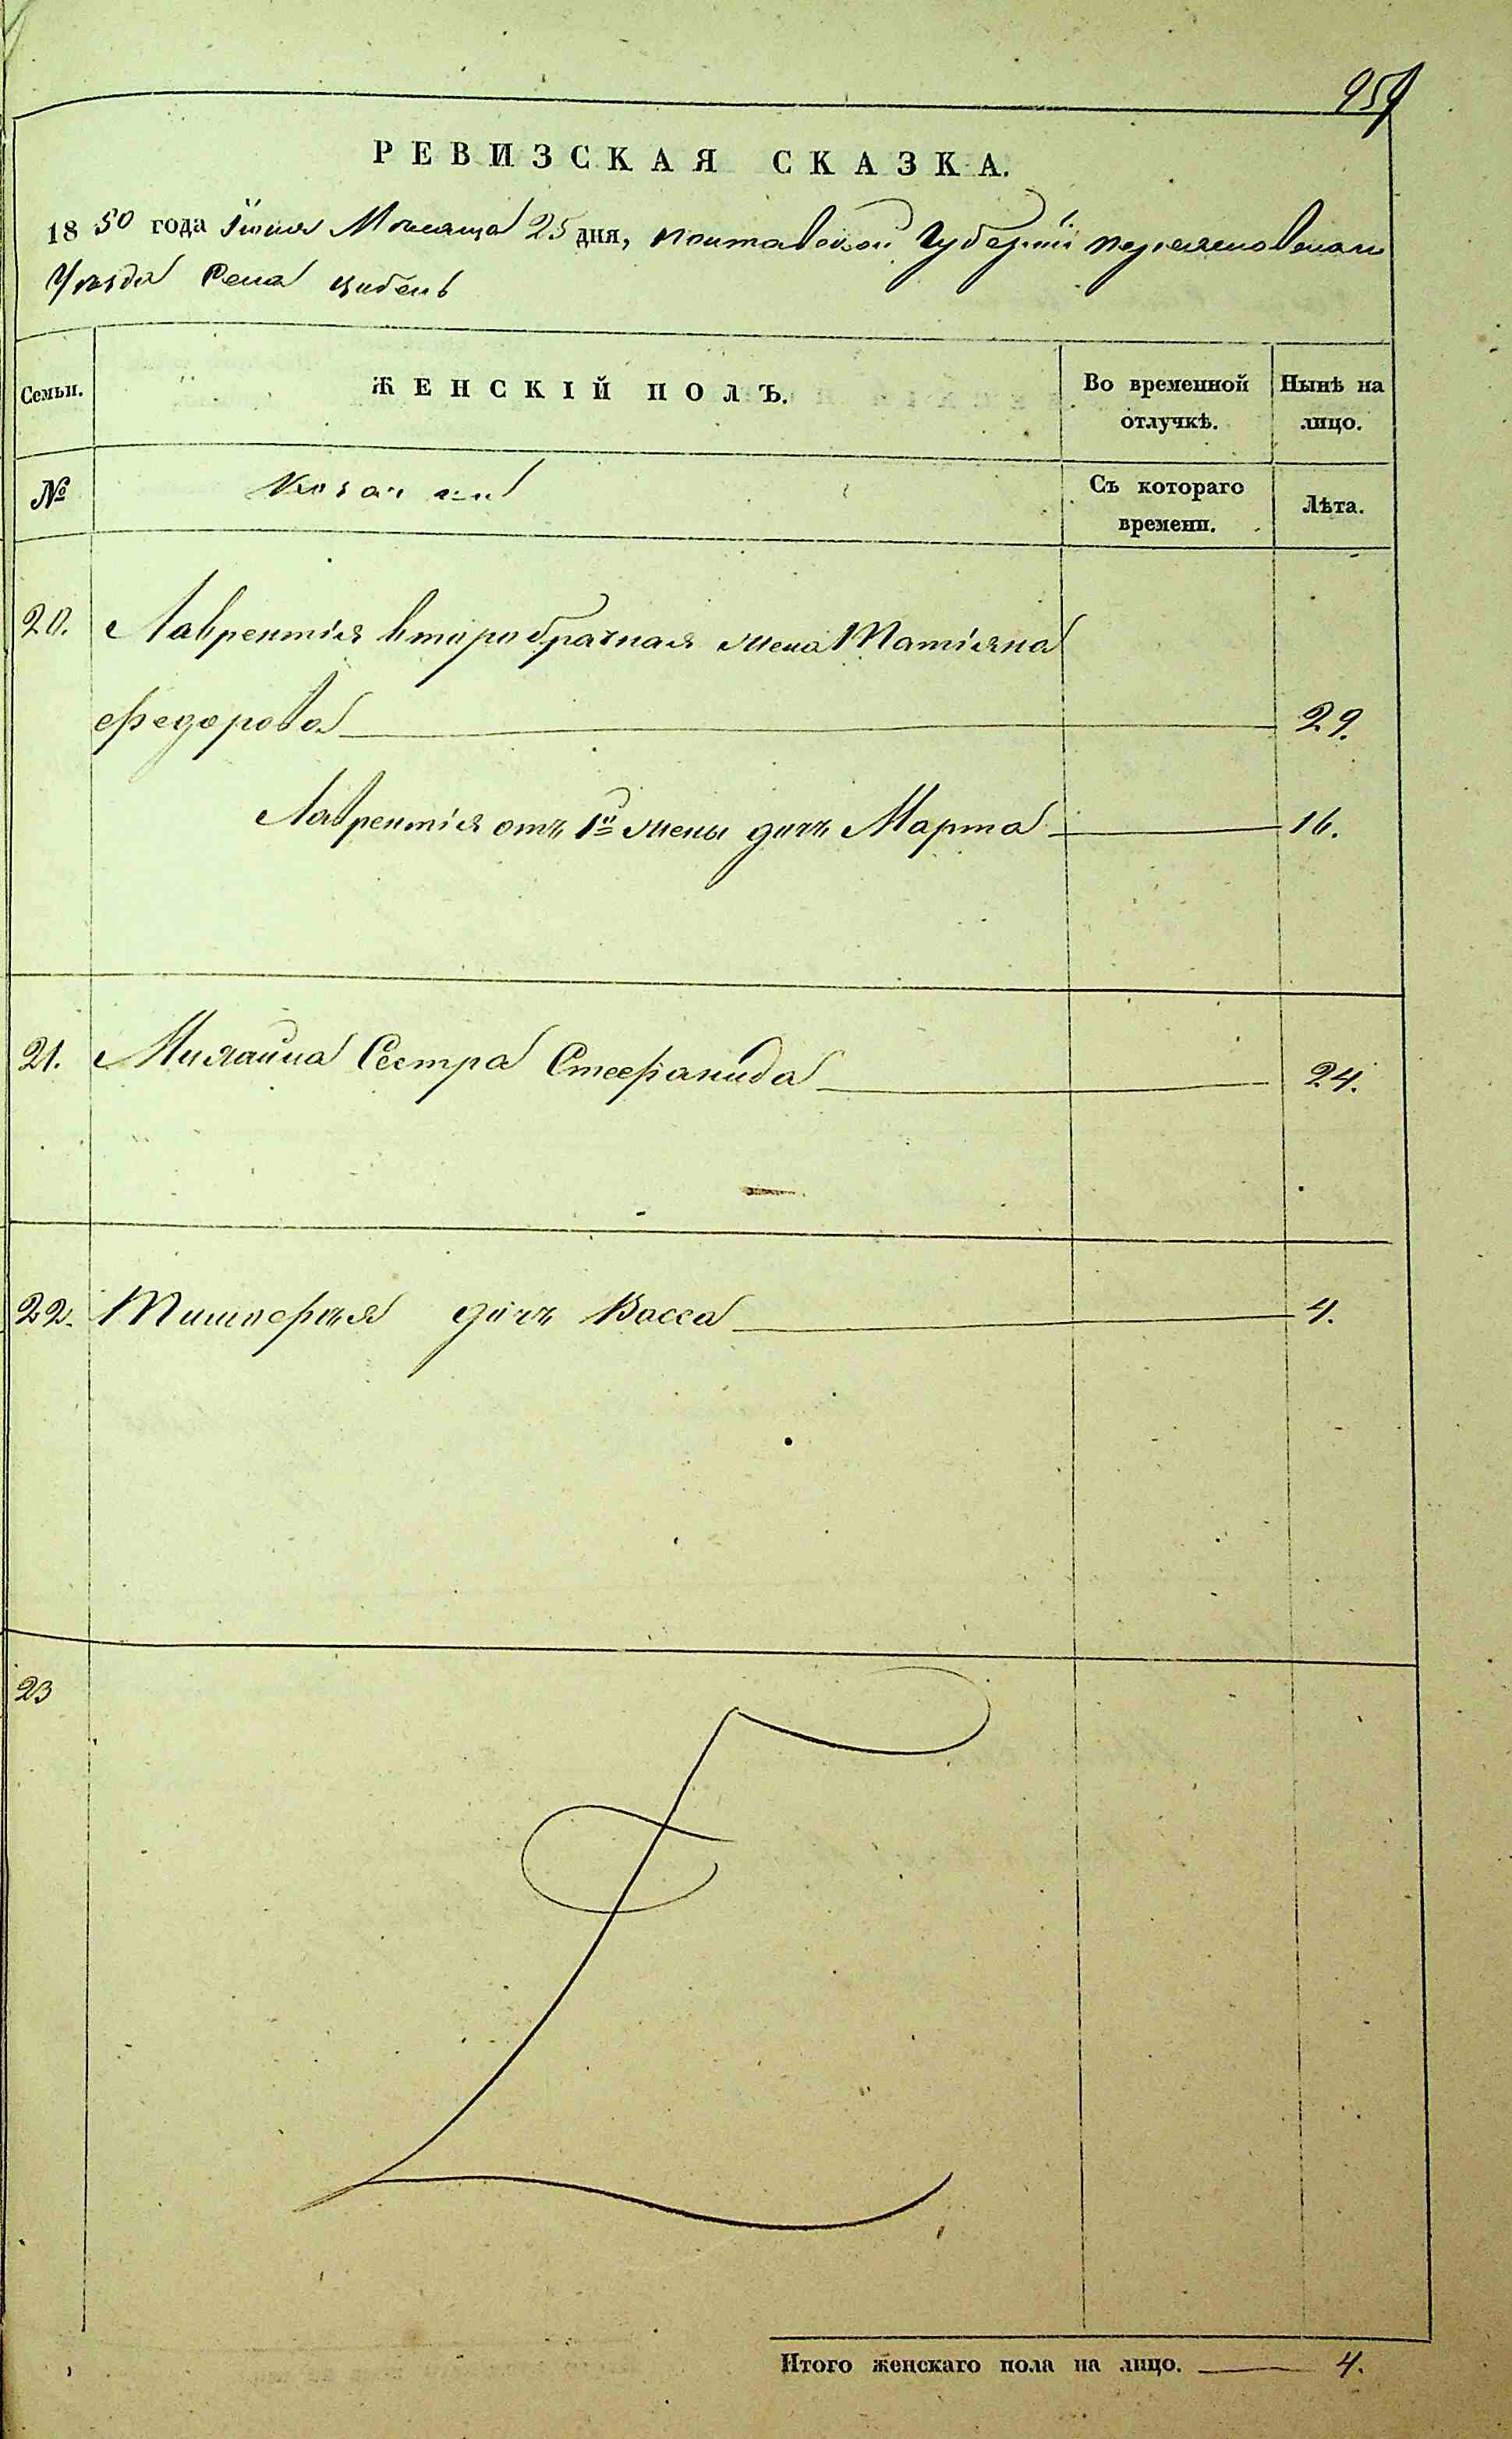 959
РЕВИЗСКАЯ СКАЗКА.
1850 года Іюня Мѣсяца 25 дня, Полтавской Губерніи Переясловскаго
Уѣзда Села Цибель
Семьи. ЖЕНСКІЙ ПОЛЪ. Во временной отлучкѣ. Нынѣ на лицо.
№ Козачки Съ котораго времени. Лѣта.
20. Лаврентія второбрачная жена Татіяна
Федорова 29.
Лаврентія отъ 1й жены дочь Марта 16.
21. Сестра Стефанида 24.
22. Тимофѣя дочь Васса 4.
23
Итого женскаго пола на лицо. 4.